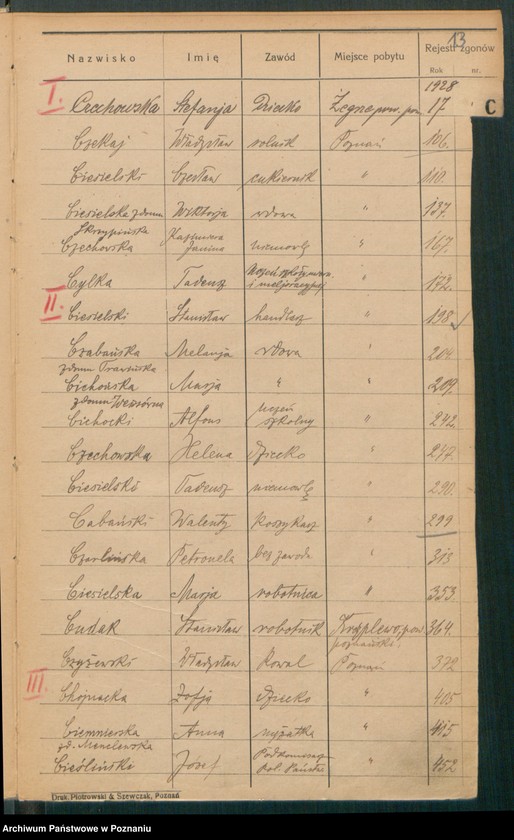 13
Nazwisko Imię Zawód Miejsce pobytu Rejestr zgonów
Rok nr.
1928
C
I. Czechowska Stefanja Dziecko Żegrze pow. pozn. 17
Czekaj Władysław rolnik Poznań 106.
Ciesielski Czesław cukiernik " 110.
Ciesielska z domu Wiktorja wdowa " 137.
Skrzypińska
Czechowska Kazimiera Janina niemowlę " 167.
Cylka Tadeusz Uczeń i meljoracyjnej " 172.
II. Ciesielski Stanisław handlarz " 198
Czabańska Melanja wdowa " 204
zdomu
Cichońska Marja " " 209.
zdomu
Cichocki Alfons uczeń szkolny " 242.
Czechowska Helena dziecko " 247.
Ciesielski Tadeusz niemowlę " 290.
Cabański Walenty Koszykarz " 299
Czarlińska Petronela bez zawodu " 313
Ciesielska Marja robotnica " 353.
Cudak Stanisław robotnik pow. 364.
poznański.
Czyżewski Władysław Kowal Poznań 372
III. Chojnacka Zofja dziecko " 405
Ciemnierska Anna mężatka " 415
zd.
Cieśliński Józef 452
Druk. Piotrowski & Szewczak, Poznań
Archiwum Państwowe w Poznaniu